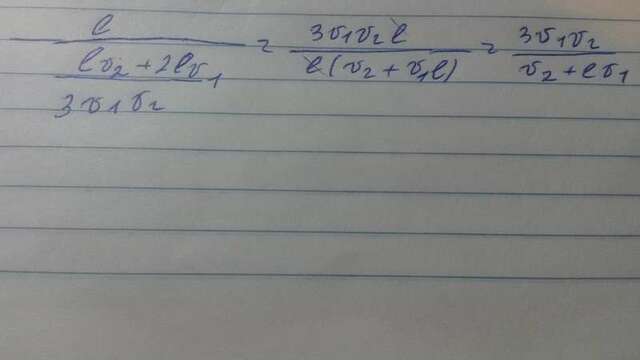 ℓ / ((ℓv₂ + 2ℓv₁) / (3v₁v₂)) = 3v₁v₂ℓ / (ℓ(v₂ + v₁ℓ)) = 3v₁v₂ / (v₂ + ℓv₁)